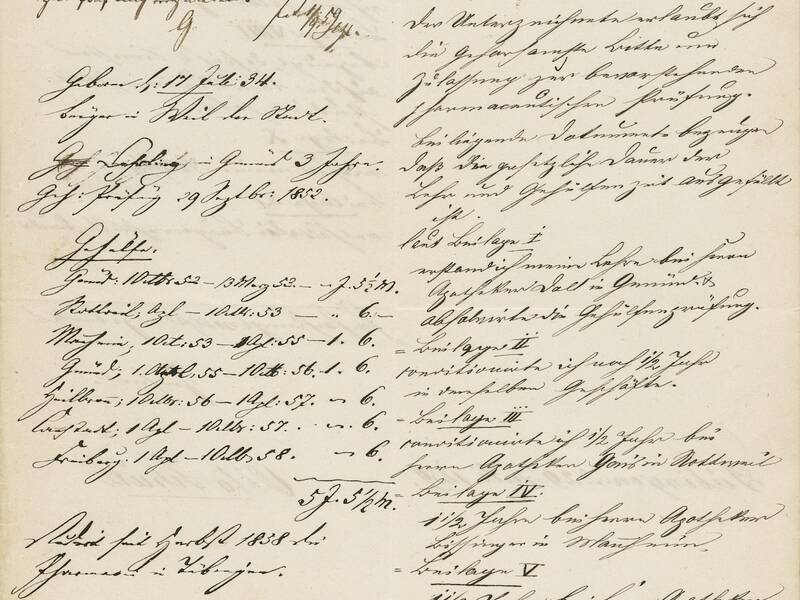 G.
59
Geboren d. 17 Juli 34.
Bürger in Weil der Stadt.
Lehrling in Gmünd 3 Jahre.
Geh: Prüfung 29 Septbr: 1852.
Gehülfe.
Gmünd: 10ctb: 52 – 13 Merz 53 – – J. 5 1/2 M.
Rottweil, Apl – 10ctb: 53 – – 6. –
Manheim, 10ct: 53 – 1 Apl: 55 – 1. 6.
Gmünd; 1. Apl: 55 – 10ctb: 56. 1. 6.
Heilbron; 10ctbr: 56 – 1 Apl: 57. – 6.
Canstadt; 1 Apl – 10ctbr: 57. – 6.
Freiburg: 1 Apl – 10ctb 58. – 6.
5 J. 5 1/2 M.
Studirt seit Herbst 1858 die
Pharmacie in Tübingen.
Der Unterzeichnete erlaubt sich
die gehorsamste Bitte um
Zulassung zur bevorstehenden
pharmaceutischen Prüfung.
Beiliegende Dokumente bezeugen
daß die gesetzliche Dauer der
Lehr und Gehülfenzeit ausgefüllt
ist.
laut Beilage I
erstand ich meine Lehre bei Herrn
Apotheker in Gmünd &
absolvirte die Gehülfenprüfung.
= Beilage II
conditionirte ich noch 1/2 Jahr
in demselben Geschäfte.
= Beilage III
conditionirte ich 1/2 Jahr bei
Herrn Apotheker in Rottweil
= Beilage IV.
1 1/2 Jahre bei Herrn Apotheker
Bissinger in Manheim.
= Beilage V
1 1/2 Jahr bei Apotheker